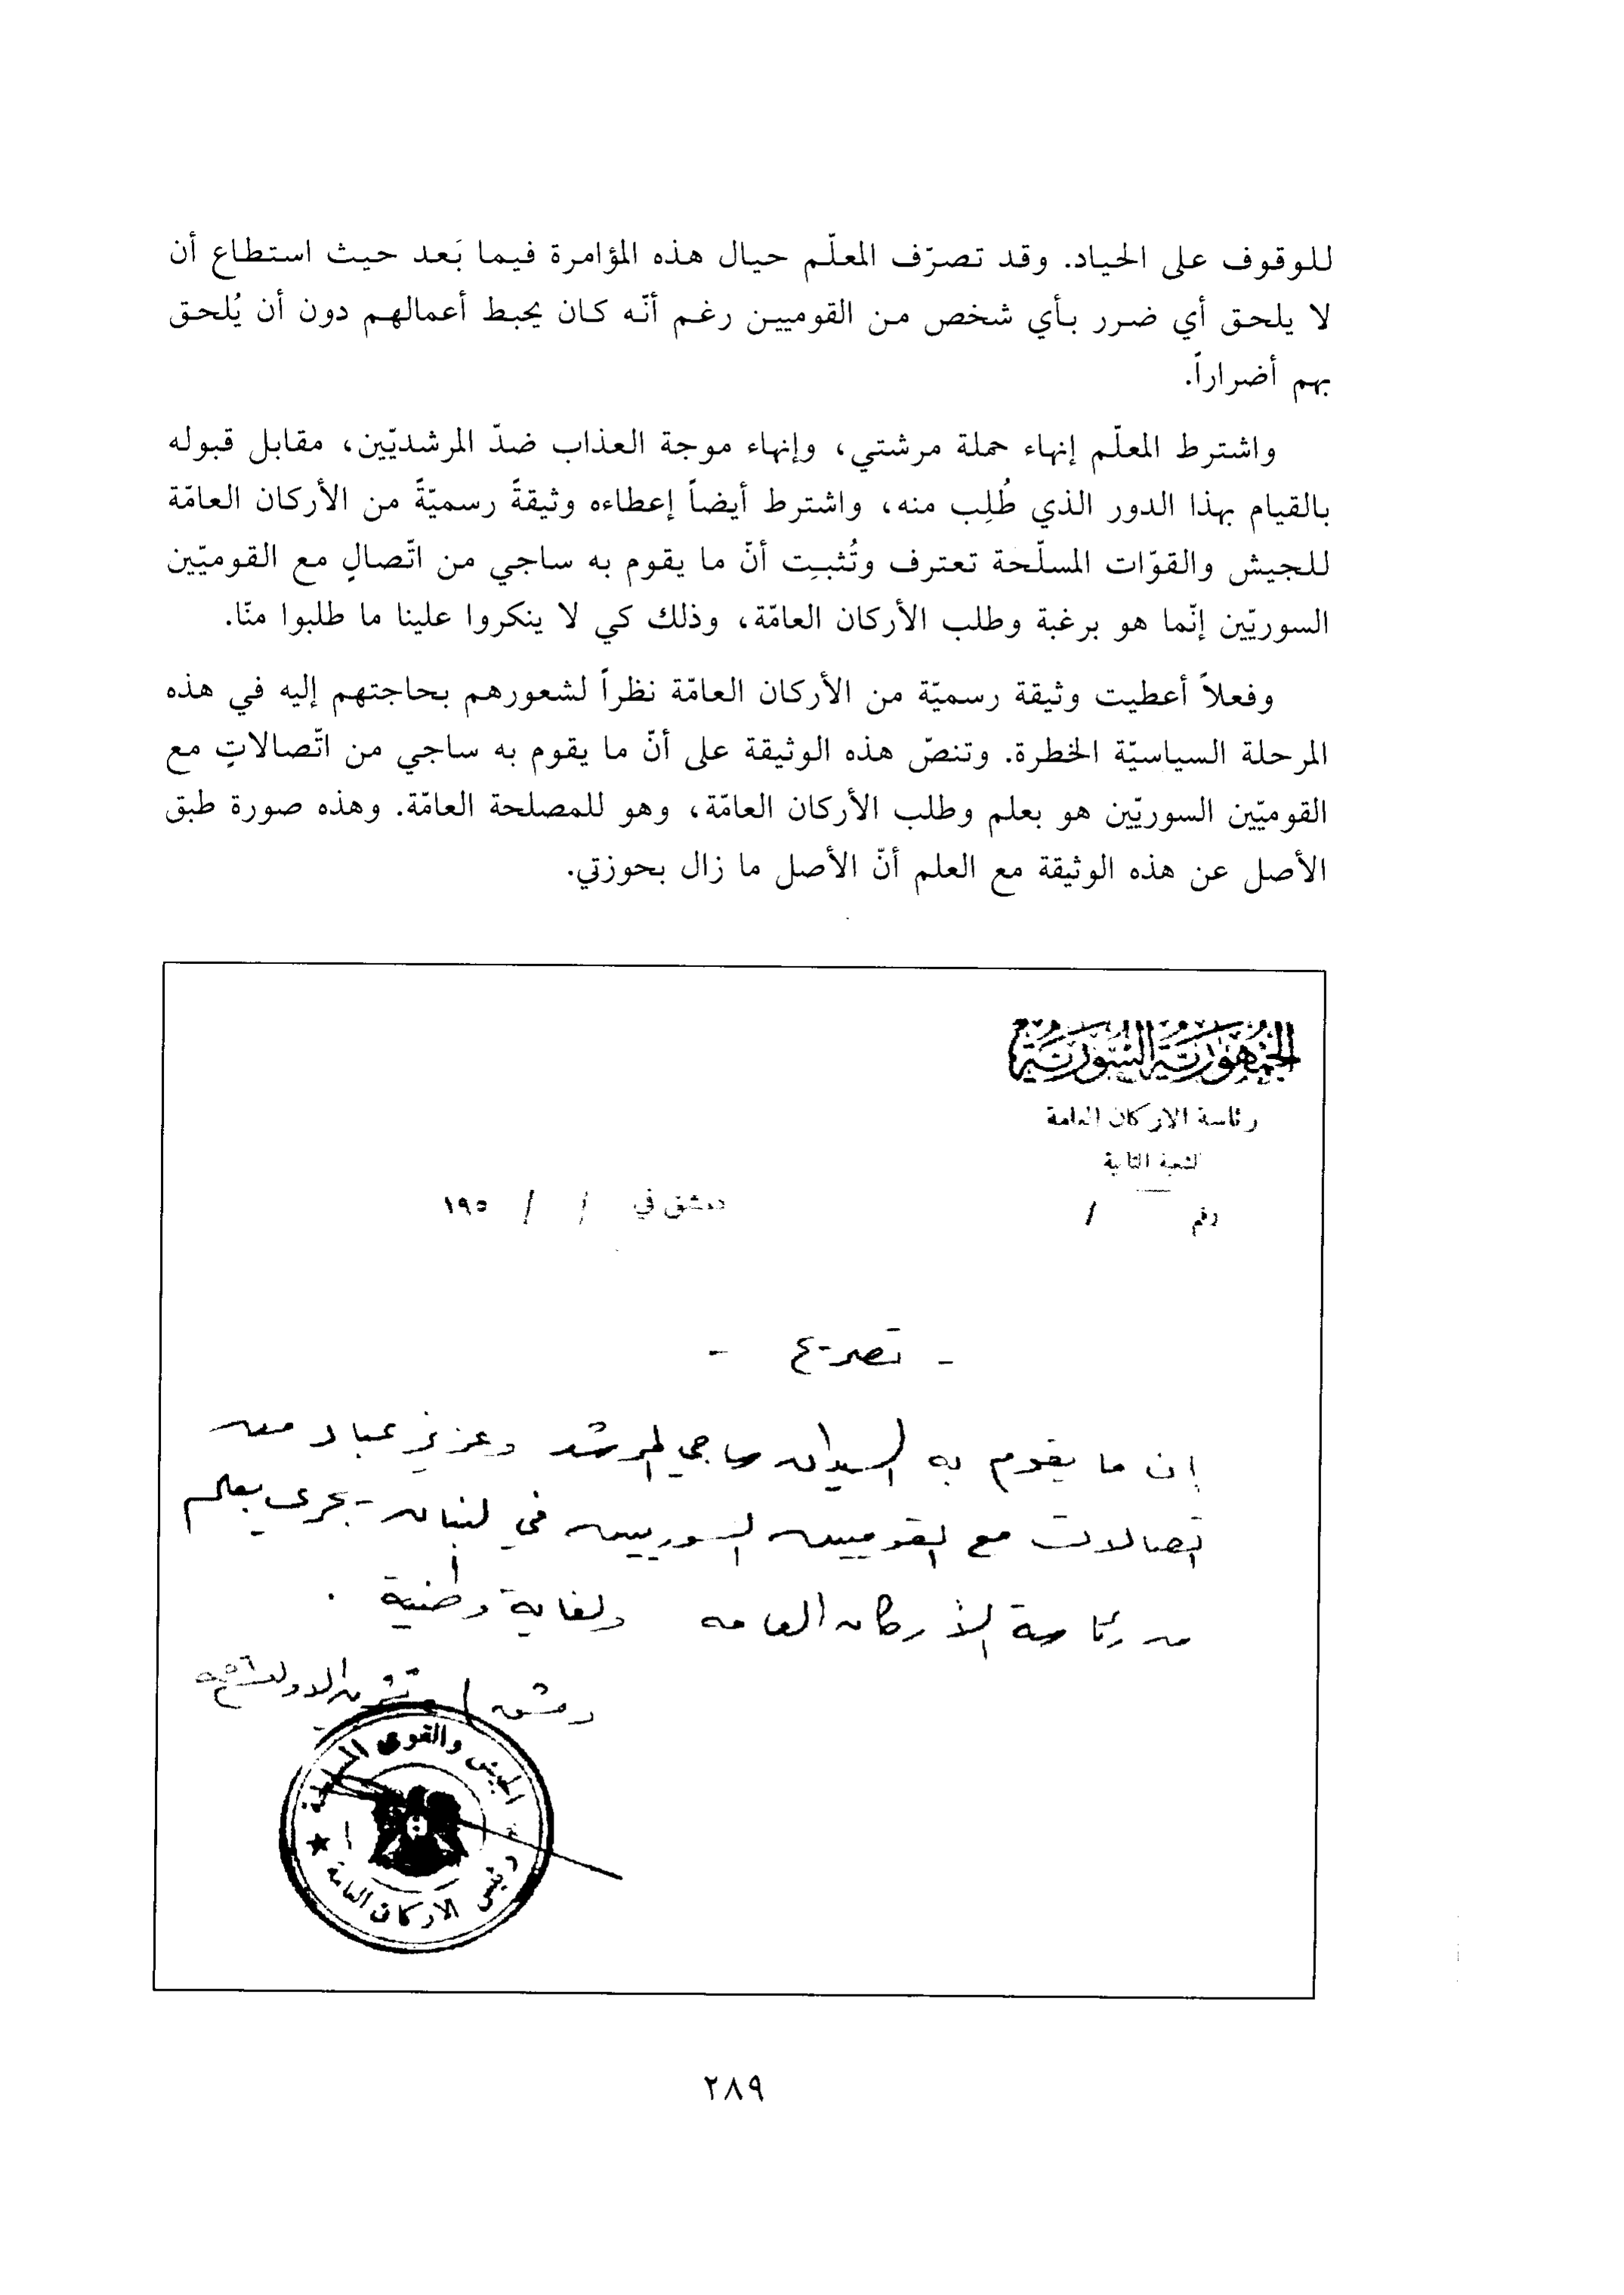 للوقوف على الحياد. وقد تصرّف المعلّم حيال هذه المؤامرة فيما بَعد حيث استطاع أن
لا يلحق أي ضرر بأي شخص من القوميين رغم أنّه كان يحبط أعمالهم دون أن يُلحق
بهم أضراراً.
واشترط المعلّم إنهاء حملة مرشتي، وإنهاء موجة العذاب ضدّ المرشديّين، مقابل قبوله
بالقيام بهذا الدور الذي طُلِب منه، واشترط أيضاً إعطاءه وثيقةً رسميّةً من الأركان العامّة
للجيش والقوّات المسلّحة تعترف وتُثبِت أنّ ما يقوم به ساجي من اتّصالٍ مع القوميّين
السوريّين إنّما هو برغبة وطلب الأركان العامّة، وذلك كي لا ينكروا علينا ما طلبوا منّا.
وفعلاً أعطيت وثيقة رسميّة من الأركان العامّة نظراً لشعورهم بحاجتهم إليه في هذه
المرحلة السياسيّة الخطرة. وتنصّ هذه الوثيقة على أنّ ما يقوم به ساجي من اتّصالاتٍ مع
القوميّين السوريّين هو بعلم وطلب الأركان العامّة، وهو للمصلحة العامّة. وهذه صورة طبق
الأصل عن هذه الوثيقة مع العلم أنّ الأصل ما زال بحوزتي.
الجمهورية السورية
رئاسة الاركان العامة
الشعبة الثانية
رقم /
دمشق في / / ١٩٥
- تصريح -
إن ما يقوم به السيدان ساجي المرشد وعزيز عباد من
اتصالات مع القوميين السوريين في لبنان - يجري بعلم
من رئاسة الأركان العامه ولغاية وطنية .
دمشق تشرين الاول
الجيش والقوى المسلحة
رئيس الاركان العامة
٢٨٩